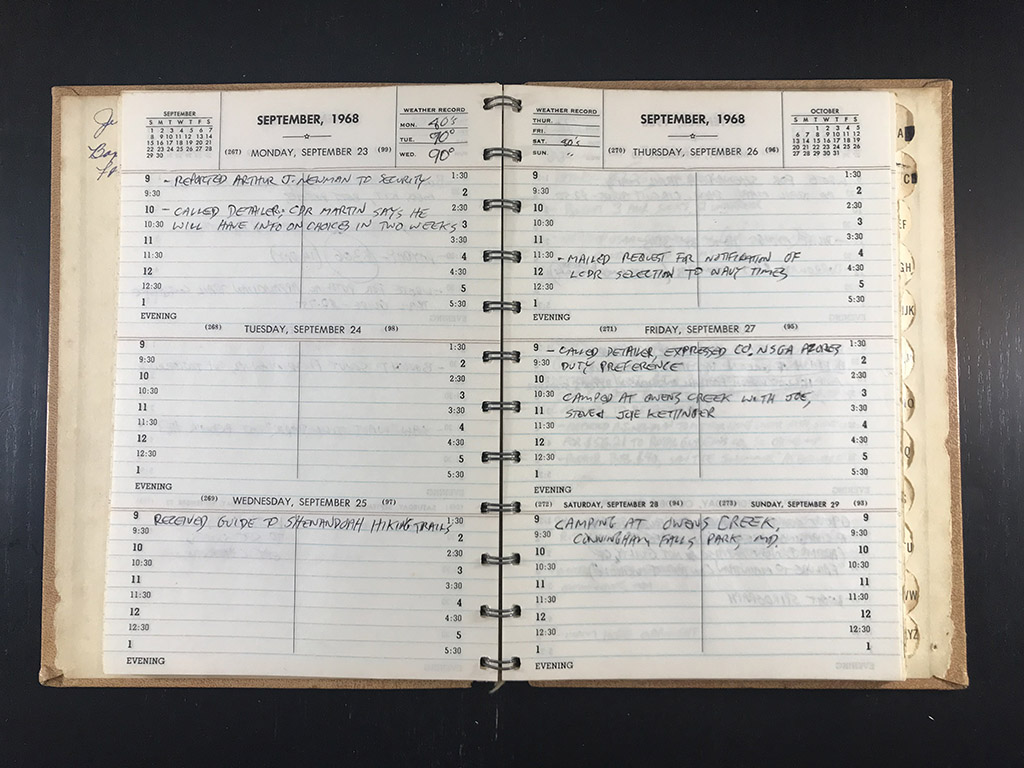 SEPTEMBER
S M T W T F S
1 2 3 4 5 6 7
8 9 10 11 12 13 14
15 16 17 18 19 20 21
22 23 24 25 26 27 28
29 30
SEPTEMBER, 1968
WEATHER RECORD
MON. 90's
TUE. 90°
WED. 90°
(267) MONDAY, SEPTEMBER 23 (99)
9 - REPORTED ARTHUR J. NEWMAN TO SECURITY. 1:30
9:30 2
10 - CALLED DETAILER; CDR MARTIN SAYS HE 2:30
10:30 WILL HAVE INFO ON CHOICES IN TWO WEEKS 3
11 3:30
11:30 4
12 4:30
12:30 5
1 5:30
EVENING
(268) TUESDAY, SEPTEMBER 24 (98)
9 1:30
9:30 2
10 2:30
10:30 3
11 3:30
11:30 4
12 4:30
12:30 5
1 5:30
EVENING
(269) WEDNESDAY, SEPTEMBER 25 (97)
9 RECEIVED GUIDE TO SHENANDOAH HIKING TRAILS 1:30
9:30 2
10 2:30
10:30 3
11 3:30
11:30 4
12 4:30
12:30 5
1 5:30
EVENING
WEATHER RECORD
THUR.
FRI.
SAT. 80's
SUN. "
SEPTEMBER, 1968
OCTOBER
S M T W T F S
1 2 3 4 5
6 7 8 9 10 11 12
13 14 15 16 17 18 19
20 21 22 23 24 25 26
27 28 29 30 31
(270) THURSDAY, SEPTEMBER 26 (96)
9 1:30
9:30 2
10 2:30
10:30 3
11 3:30
11:30 - MAILED REQUEST FOR NOTIFICATION OF 4
12 LCDR SELECTION TO NAVY TIMES 4:30
12:30 5
1 5:30
EVENING
(271) FRIDAY, SEPTEMBER 27 (95)
9 - CALLED DETAILER, EXPRESSED CO, NSGA AZORES 1:30
9:30 DUTY PREFERENCE 2
10 2:30
10:30 CAMPED AT OWENS CREEK WITH JOE, 3
11 STEVE & JOE KETTINGER 3:30
11:30 4
12 4:30
12:30 5
1 5:30
EVENING
(272) SATURDAY, SEPTEMBER 28 (94) (273) SUNDAY, SEPTEMBER 29 (93)
9 CAMPING AT OWENS CREEK, 9
9:30 CUNNINGHAM FALLS PARK, MD. 9:30
10 10
10:30 10:30
11 11
11:30 11:30
12 12
12:30 12:30
1 1
EVENING
A
C
EF
GH
IJK
O
Q
TU
VW
XYZ